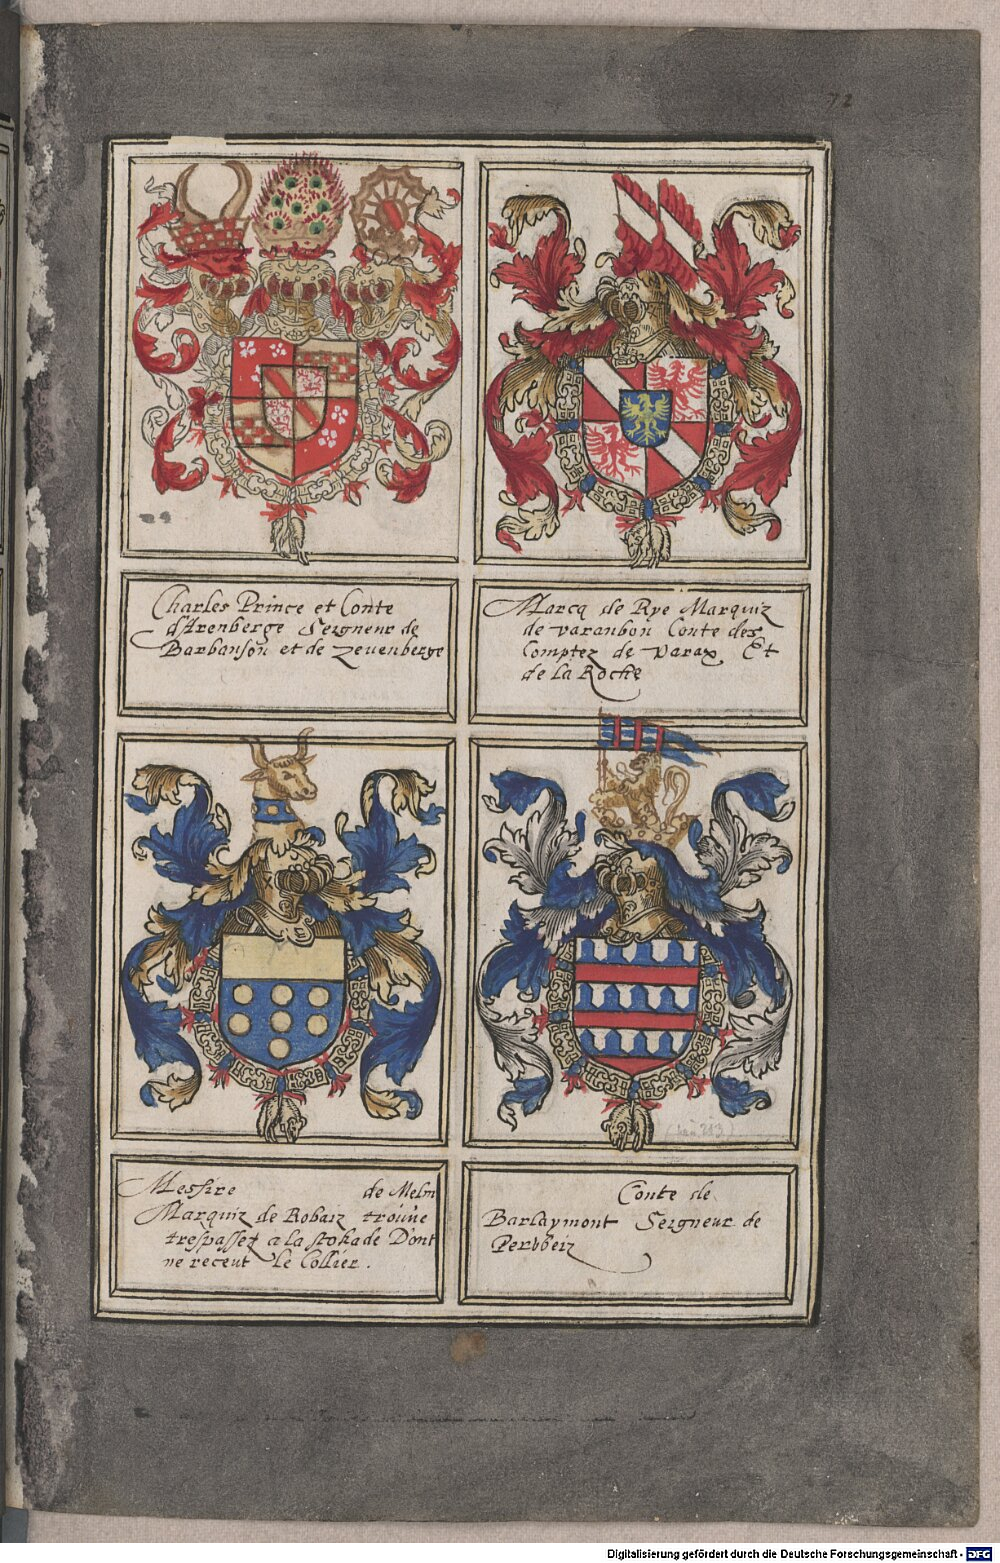 72
Charles Prince et Conte
d'Arenberge Seigneur de
Barbanson et de Zevenberge
Marcq de Rye Marquiz
de varanbon Conte des
Comptez de varax Et
de la Roche
Messire de Melm
Marquiz de Robaiz trouue
trespassez a la stokade Dont
ne receut le Collier.
Conte de
Barlaymont Seigneur de
Perbbeiz
Digitalisierung gefördert durch die Deutsche Forschungsgemeinschaft - DFG